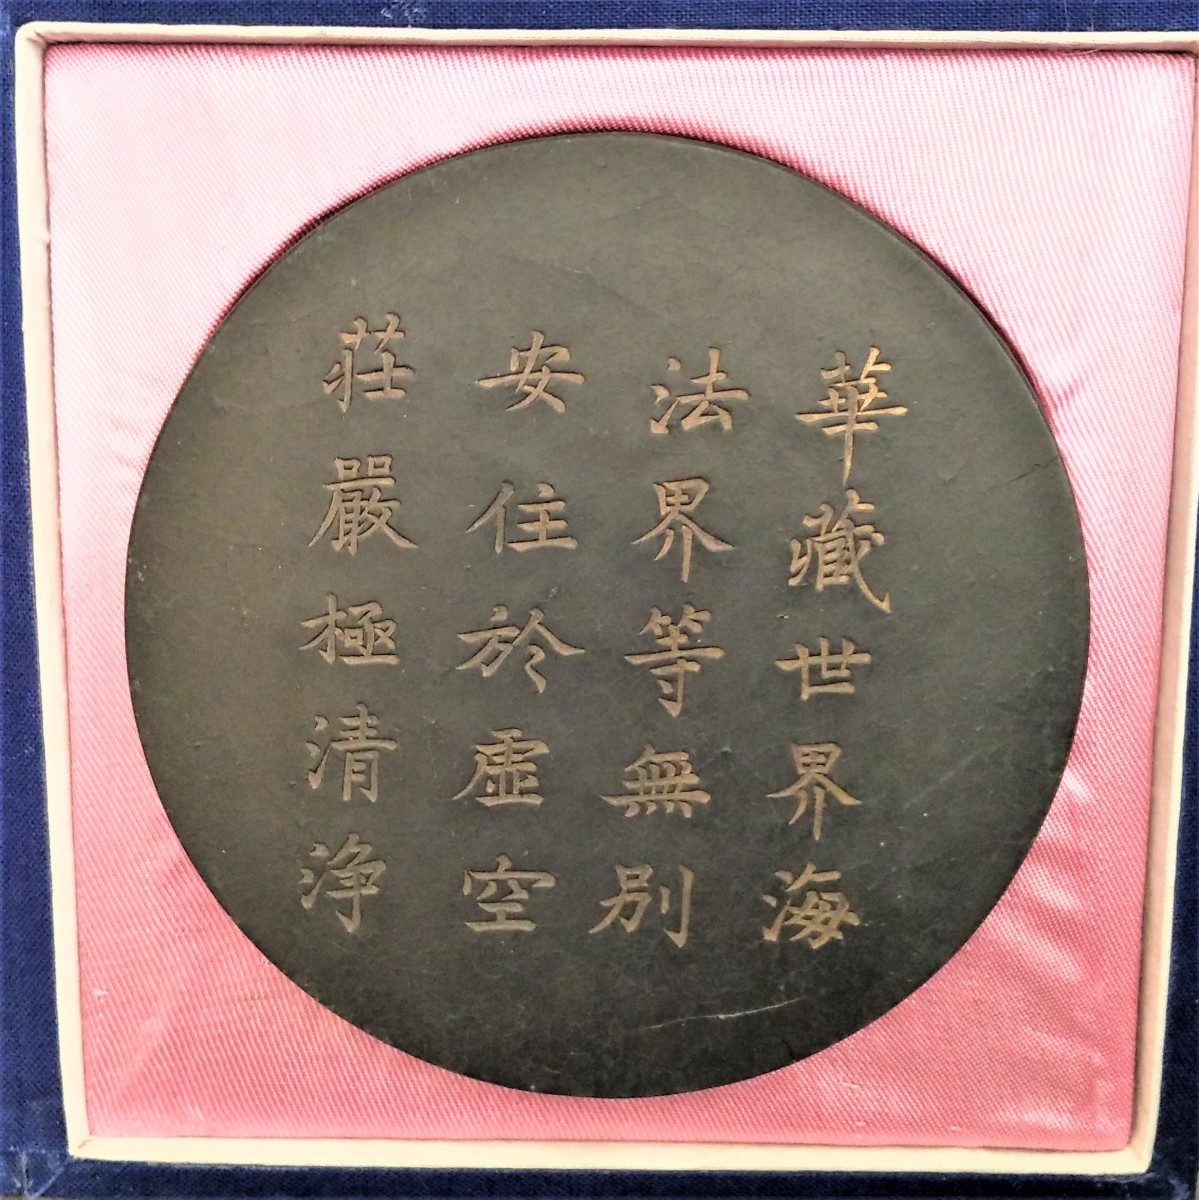 華藏世界海
法界等無別
安住於虛空
莊嚴極清浄